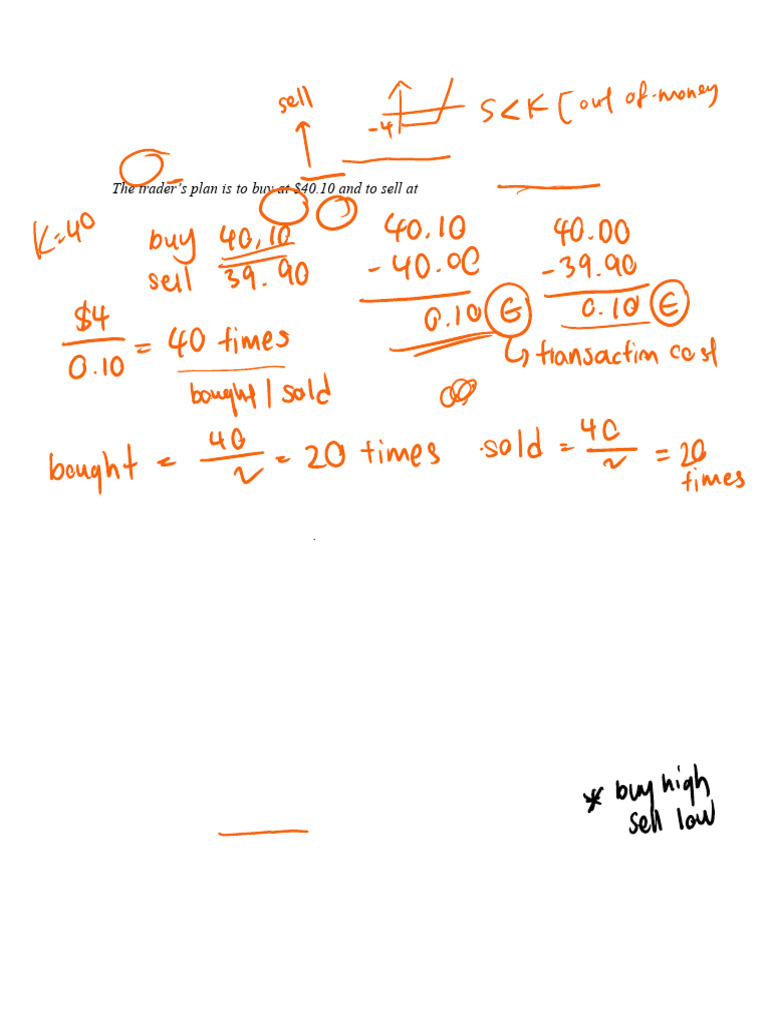 sell
-4
S<K [out of-money
The trader's plan is to buy at $40.10 and to sell at
K=40
buy 40.10
sell 39.90
40.10
- 40.00
0.10 G
40.00
- 39.90
0.10 E
↳ transaction cost
$4
0.10
= 40 times
bought | sold
bought = 40/2 = 20 times
sold = 40/2 = 20 times
* buy high
sell low